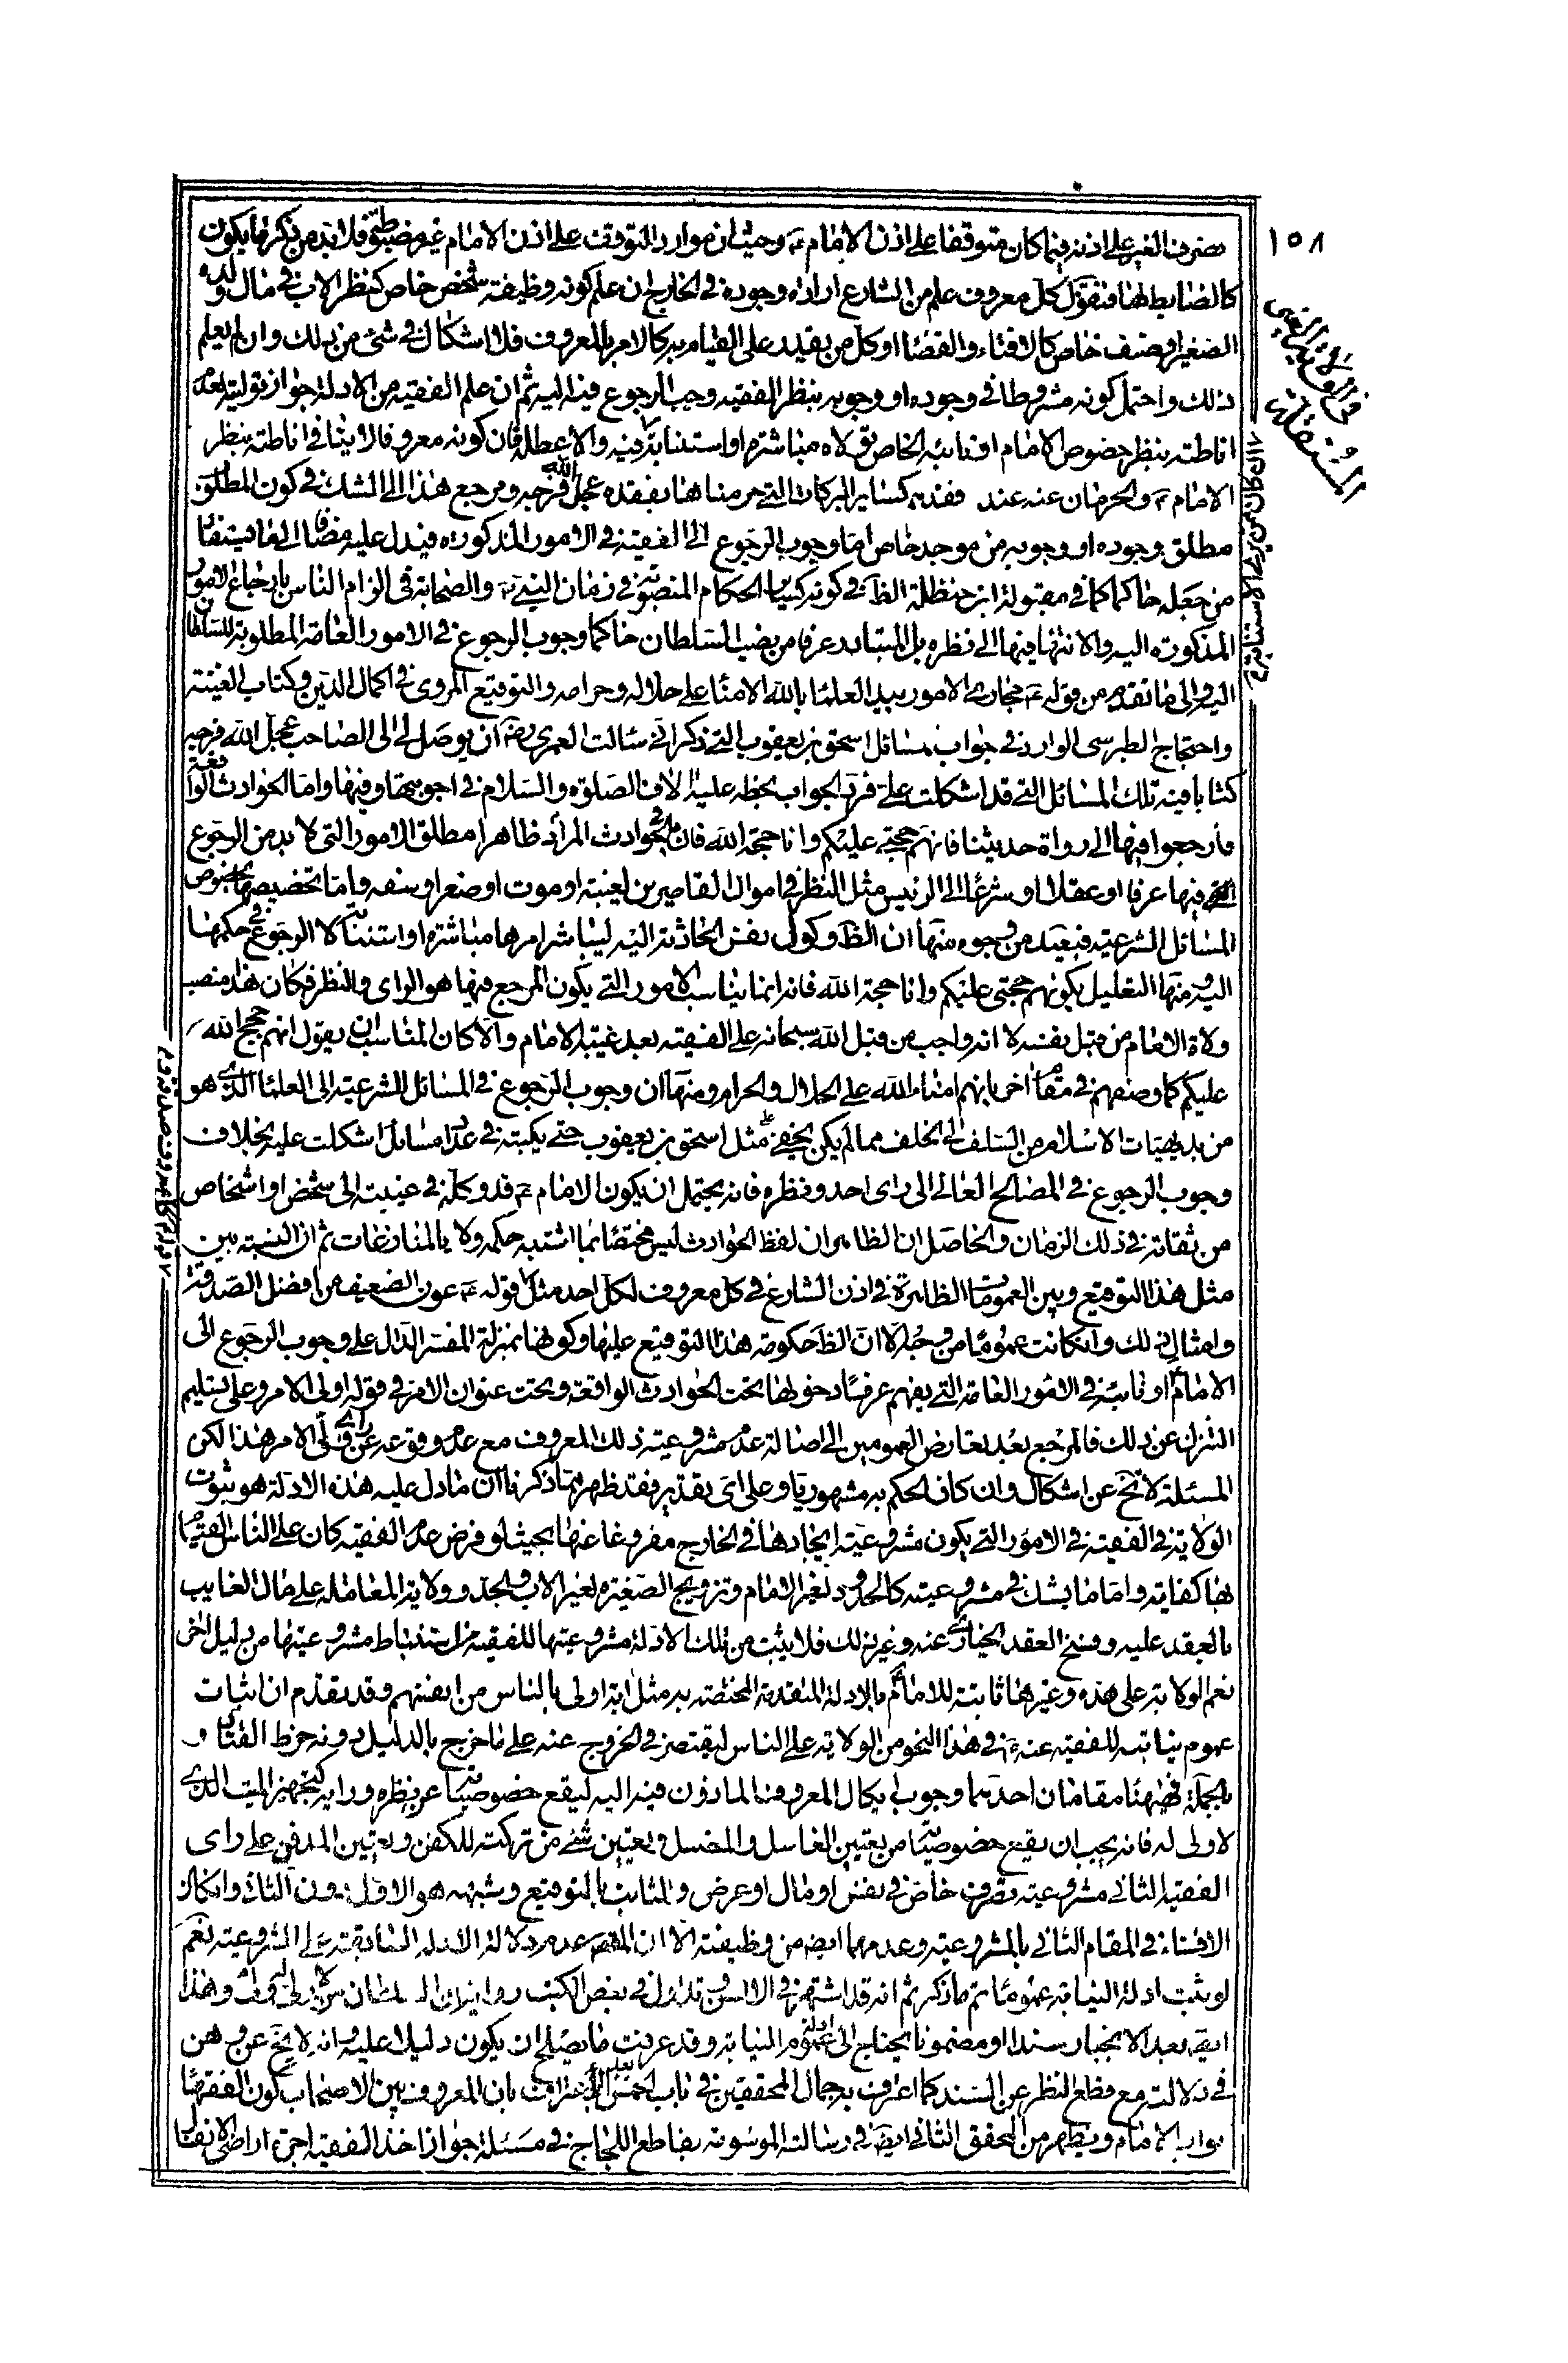 ١٥٨
تصرف الغير على اذنه فيما كان متوقفا على اذن الامام ع وحيث ان موارد التوقف على اذن الامام غير مضبوطة فلا بد من ذكر ما يكون
كالضابط لها فنقول كل معروف علم من الشارع ارادة وجوده في الخارج ان علم كونه وظيفة شخص خاص كنظر الاب في مال ولده
الصغير او صنف خاص كالافتاء والقضاء او كل من يقدر على القيام به كالامر بالمعروف فلا اشكال في شئ من ذلك وان لم يعلم
ذلك واحتمل كونه مشروطا في وجوده او وجوبه بنظر الفقيه وجب الرجوع فيه اليه ثم ان علم الفقيه من الادلة جواز توليته لعدم
اناطته بنظر خصوص الامام او نائبه الخاص تولاه مباشرة او استنابة والا عطله فان كونه معروفا لا ينافي اناطته بنظر
الامام ع والحرمان عنه عند فقده كسائر البركات التي حرمناها بفقده عجل الله فرجه ومرجع هذا الى الشك في كون المطلوب
مطلق وجوده او وجوبه من موجد خاص اما وجوب الرجوع الى الفقيه في الامور المذكورة فيدل عليه مضافا الى ما يستفاد
من جعله حاكما كما في مقبولة ابن حنظلة الظ في كونه كساير الحكام المنصوبة في زمان النبي ص والصحابة في الزام الناس بارجاع الامور
المذكورة اليه والانتهاء فيها الى نظره بل المتبادر عرفا من نصب السلطان حاكما وجوب الرجوع في الامور العامة المطلوبة للسلطان
اليه والى ما تقدم من قوله ع مجاري الامور بيد العلماء بالله الامناء على حلاله وحرامه والتوقيع المروى في اكمال الدين وكتاب الغيبة
واحتجاج الطبرسى الوارد في جواب مسائل اسحق بن يعقوب التي ذكر اني سالت العمري رض ان يوصل لي الى الصاحب عجل الله فرجه
كتابا فيه تلك المسائل التي قد اشكلت علي فورد الجواب بخطه عليه الاف الصلوة والسلام في اجوبتها وفيها واما الحوادث الواقعة
فارجعوا فيها الى رواة حديثنا فانهم حجتي عليكم وانا حجة الله فان المراد بالحوادث ظاهرا مطلق الامور التي لا بد من الرجوع
فيها عرفا او عقلا او شرعا الى الرئيس مثل النظر في اموال القاصرين لغيبة او موت او صغر او سفه واما تخصيصها بخصوص
المسائل الشرعية فبعيد من وجوه منها ان الظ وكول نفس الحادثة اليه ليباشر امرها مباشرة او استنابة لا الرجوع في حكمها
اليه ومنها التعليل بكونهم حجتي عليكم وانا حجة الله فانه انما يناسب الامور التي يكون المرجع فيها هو الراى والنظر فكان هذا منصب
ولاة الامام من قبل نفسه لا انه واجب من قبل الله سبحانه على الفقيه بعد غيبة الامام والا كان المناسب ان يقول انهم حجج الله
عليكم كما وصفهم في مقام اخر بانهم امناء الله على الحلال والحرام ومنها ان وجوب الرجوع في المسائل الشرعية الى العلماء الذي هو
من بديهيات الاسلام من السلف الى الخلف مما لم يكن يخفى على مثل اسحق بن يعقوب حتى يكتبه في عداد مسائل اشكلت عليه بخلاف
وجوب الرجوع في المصالح العامة الى راى احد ونظره فانه يحتمل ان يكون الامام ع قد وكله في غيبته الى شخص او اشخاص
من ثقاته في ذلك الزمان والحاصل ان الظاهر ان لفظ الحوادث ليس مختصا بما اشتبه حكمه ولا بالمنازعات ثم ان النسبة بين
مثل هذا التوقيع وبين العمومات الظاهرة في اذن الشارع في كل معروف لكل احد مثل قوله ع عون الضعيف من افضل الصدقة
وامثال ذلك وان كانت عموما من وجه الا ان الظ حكومة هذا التوقيع عليها وكونها بمنزلة المفسر الدال على وجوب الرجوع الى
الامام ع او نائبه في الامور العامة التي يفهم عرفا دخولها تحت الحوادث الواقعة وتحت عنوان الامر في قوله اولى الامر وعلى تسليم
التنزل عن ذلك فالمرجع بعد تعارض العمومين الى اصالة عدم مشروعية ذلك المعروف مع عدم وقوعه عن راى ولي الامر هذا لكن
المسئلة لا تخ عن اشكال وان كان الحكم به مشهوريا وعلى اى تقدير فقد ظهر مما ذكرنا ان ما دل عليه هذه الادلة هو ثبوت
الولاية في الفقيه في الامور التي يكون مشروعية ايجادها في الخارج مفروغا عنها بحيث لو فرض عدم الفقيه كان على الناس القيام
بها كفاية واما ما يشك في مشروعيته كالحدود لغير الامام وتزويج الصغيرة لغير الاب والجد وولاية المعاملة على مال الغايب
بالعقد عليه وفسخ العقد الخيارى عنه وغير ذلك فلا يثبت من تلك الادلة مشروعيتها للفقيه بل لا بد من استنباط مشروعيتها من دليل اخر
نعم الولاية على هذه وغيرها ثابتة للامام ع بالادلة المتقدمة المختصة به مثل اية اولى بالناس من انفسهم وقد تقدم ان اثبات
عموم نيابة للفقيه عنه ع في هذا النحو من الولاية على الناس ليقتصر في الخروج عنه على ما خرج بالدليل دونه خرط القتاد و
بالجملة فههنا مقامان احدهما وجوب ايكال المعروف الماذون فيه اليه ليقع خصوصياته عن نظره ورايه كتجهيز الميت الذي
لا ولى له فانه يجب ان يقع خصوصياته من تعيين الغاسل والمغسل وتعيين شئ من تركته للكفن وتعيين المدفن على راى
الفقيه الثاني مشروعية تصرف خاص في نفس او مال او عرض والثابت بالتوقيع وشبهه هو الاول دون الثاني وان كان
الافتاء في المقام الثاني بالمشروعية وعدمها ايضا من وظيفته الا ان المقصود عدم دلالة الادلة السابقة على المشروعية نعم
لو ثبت ادلة النيابة عموما تم ما ذكر ثم انه قد اشتهر في الالسن وتداول في بعض الكتب رواية ان السلطان ولي من لا ولي له وهذا
ايضا بعد الانجبار سندا او مضمونا يحتاج الى ادلة عموم النيابة وقد عرفت ما يصلح ان يكون دليلا عليه وانه لا يخ عن وهن
في دلالته مع قطع النظر عن السند كما اعترف به جمال المحققين في باب الخمس بعد الاعتراف بان المعروف بين الاصحاب كون الفقهاء
نواب الامام ويظهر من المحقق الثاني ايضا في رسالته الموسومة بقاطع اللجاج في مسئلة جواز اخذ الفقيه اجرة اراضى الانفال